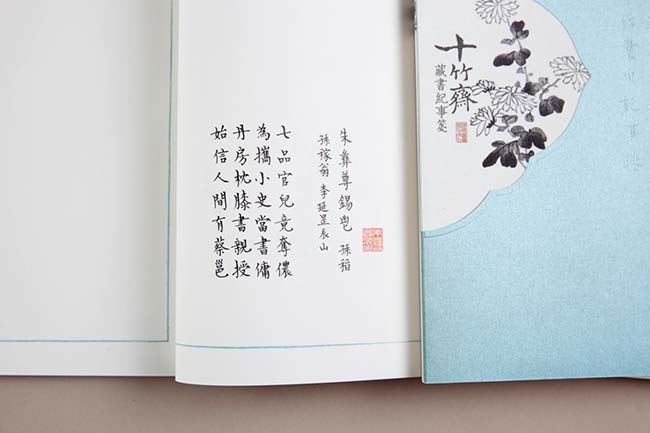 十竹齋
藏書紀事箋
朱彝尊錫鬯 孫稻
孫稼翁 李延昰辰山
七品官兒竟奪儂
為攜小史當書傭
丹房枕膝書親授
始信人間有蔡邕